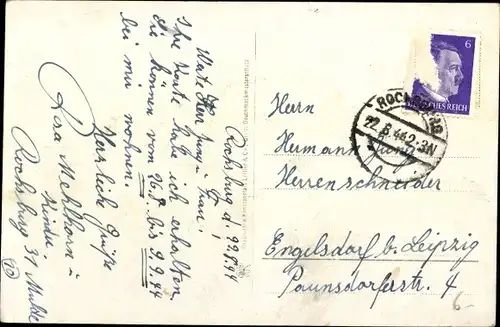 Rochsburg d. 22.8.44
Werte Herr Jung u. Frau.
Ihre Karte habe ich erhalten,
sie können vom 26.8. bis 9.9.44
bei mir wohnen.
Herzliche Grüße
Rosa Mehlhorn u.
Kinder
Rochsburg 31 Mulde
Herrn
Hermann Jung
Herrenschneider
Engelsdorf b. Leipzig
Paunsdorferstr. 4
6
DEUTSCHES REICH
ROCHSBURG
22.8.44.2-3N
6